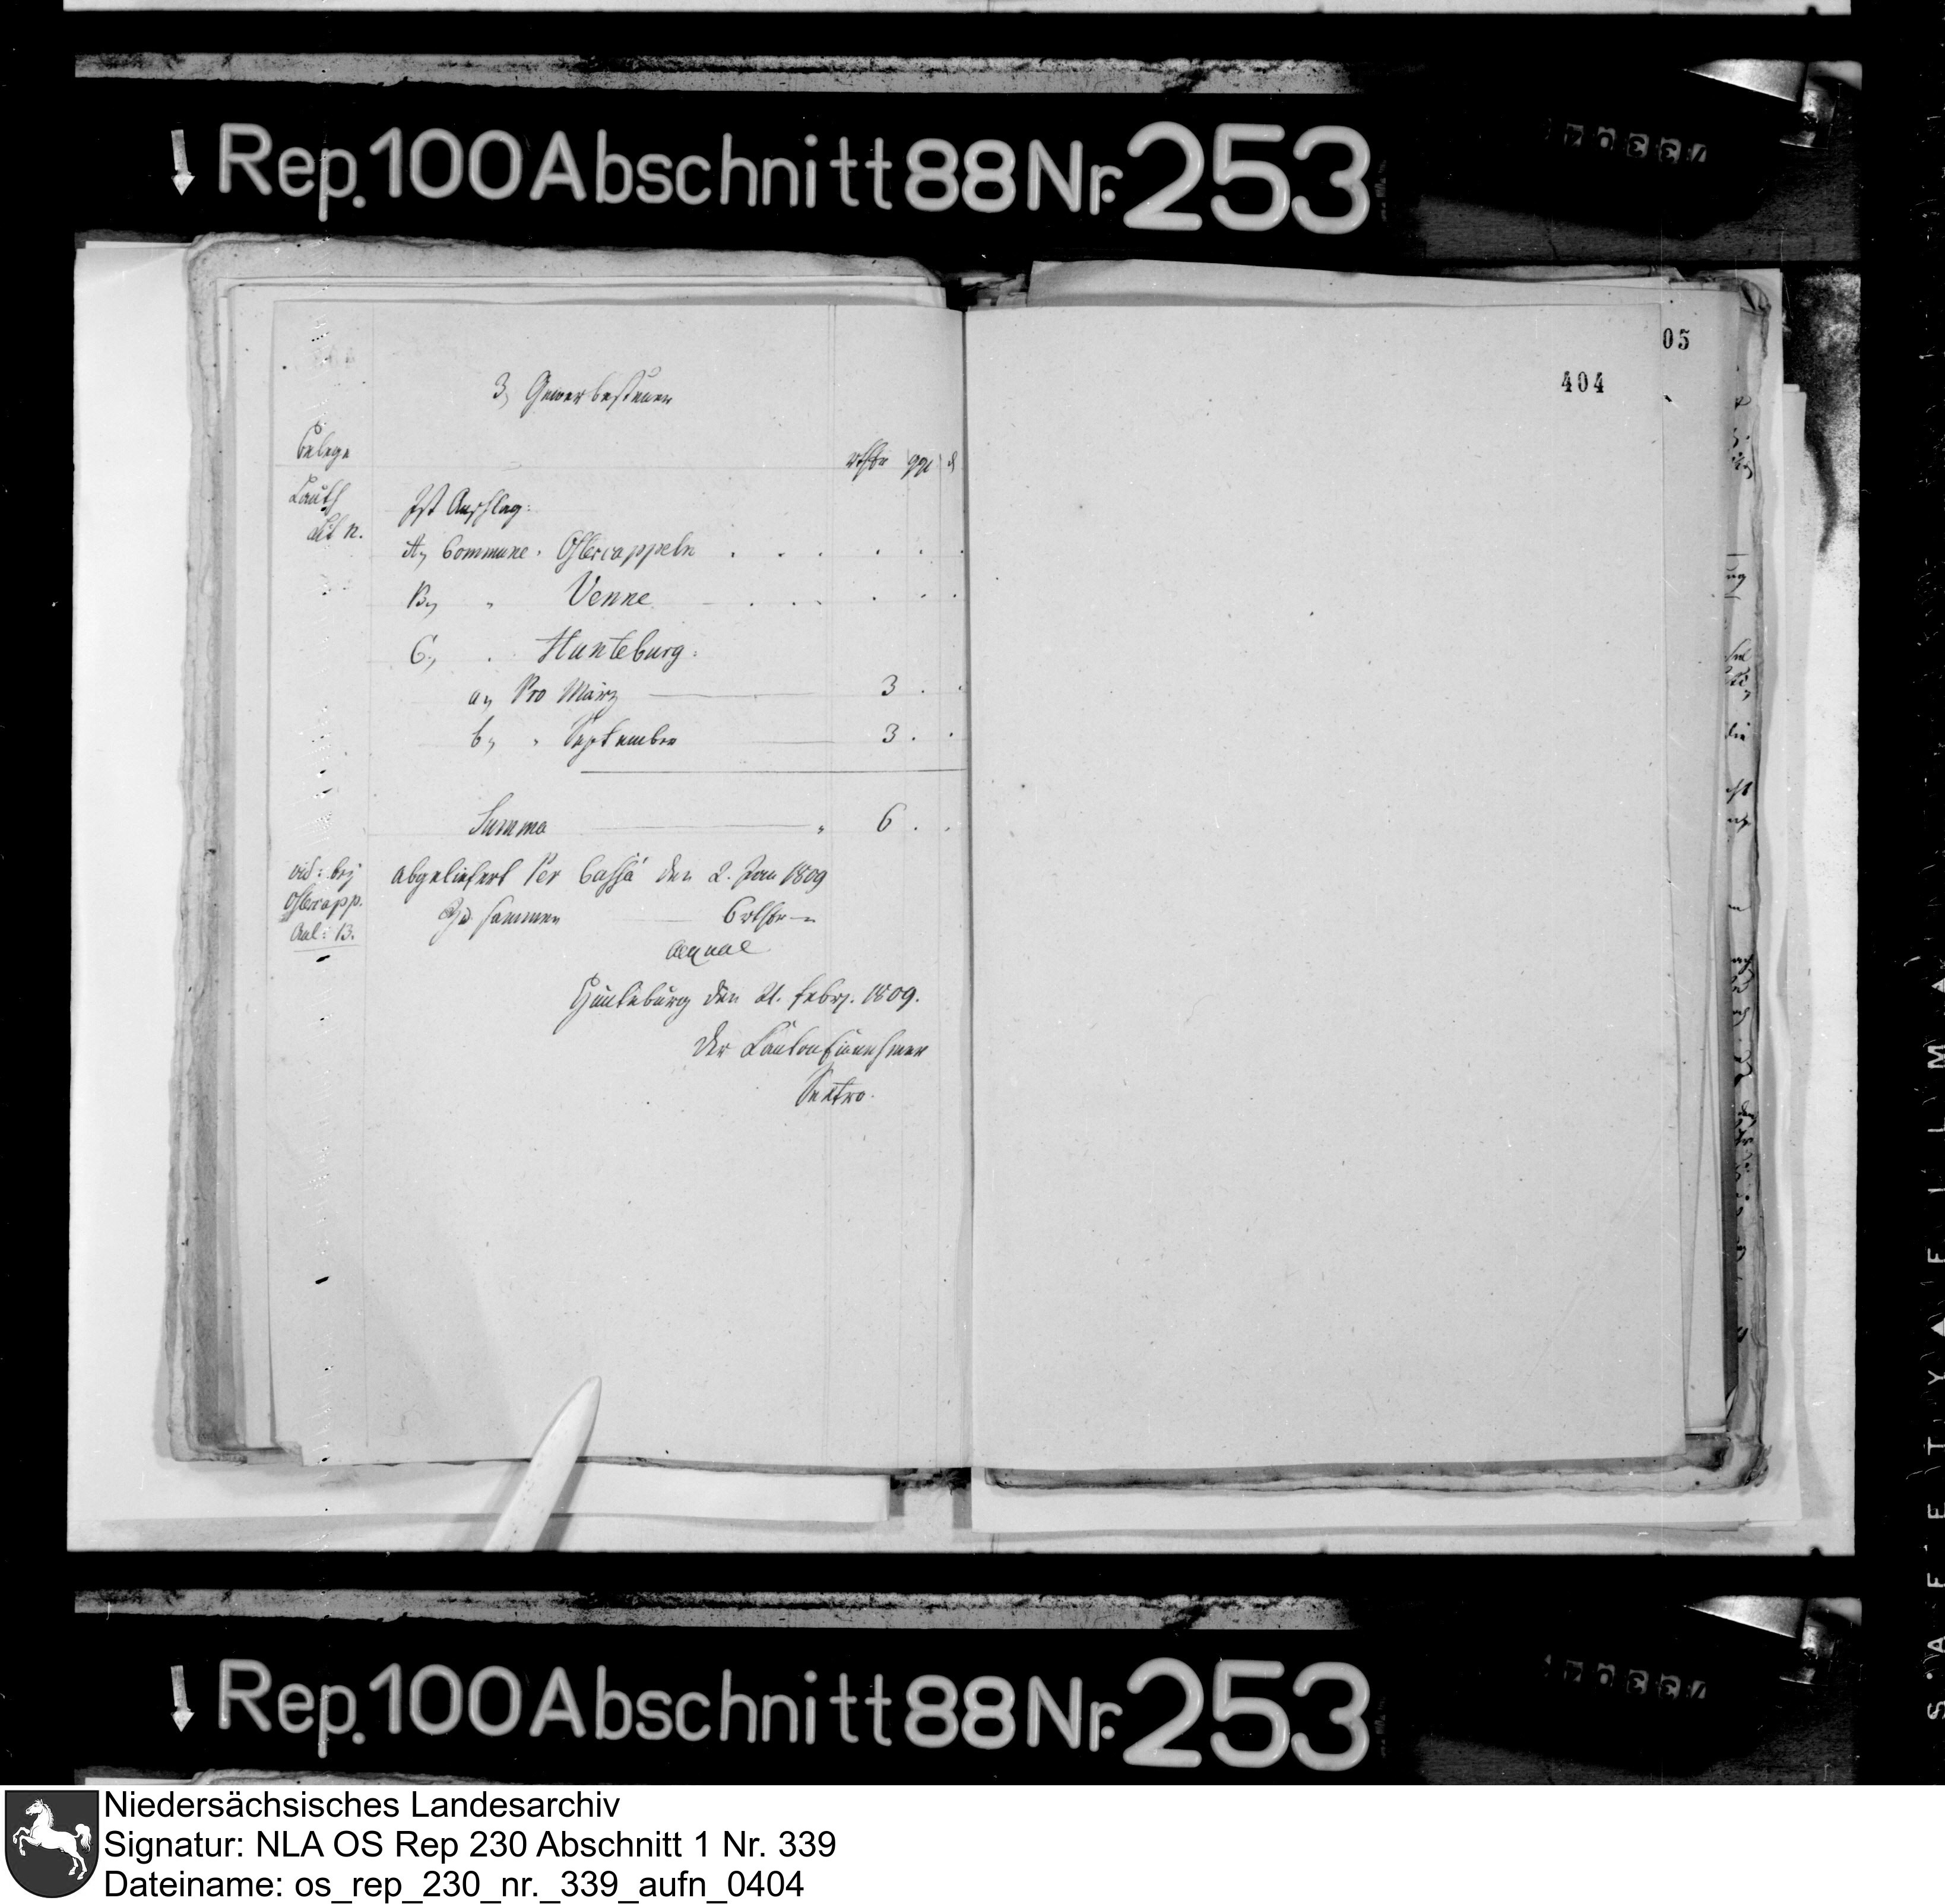 Rep. 100 Abschnitt 88 Nr. 253
05
404
3, Gewerbesteuer
Belege
rthlr ggl d
Lauth
Lit n.
Ist Anschlag:
A, Commune. Ostercappeln . . . . . .
B, " Venne . . . . . .
C, . Hunteburg.
a, Pro März 3 . .
b, " September 3 . .
Summa " 6 . .
vid: bej
Ostercapp.
Anl: B.
abgeliefert Per Cassa den 2. Jan 1809
Zusammen 6 rthlr —
aequal
Hunteburg den 21. Febrj. 1809.
Der Cantonseinnehmer
Rep. 100 Abschnitt 88 Nr. 253
Niedersächsisches Landesarchiv
Signatur: NLA OS Rep 230 Abschnitt 1 Nr. 339
Dateiname: os_rep_230_nr._339_aufn_0404